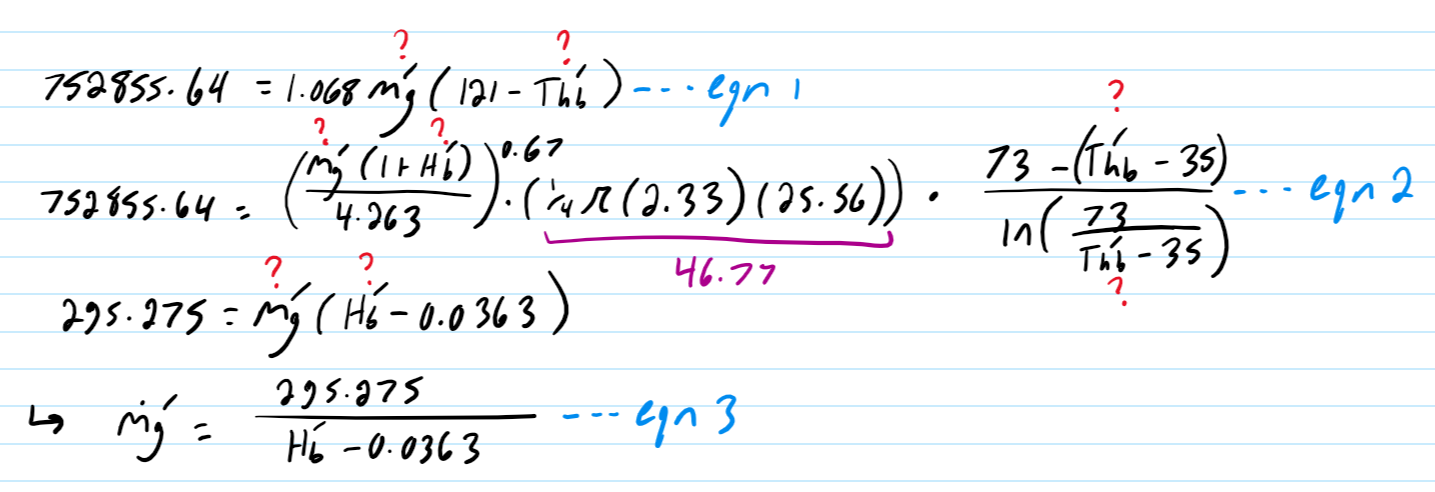 752855.64 = 1.068 ṁg′ (121 - Thb′) --- eqn 1
752855.64 = (ṁg′ (1 + Hb′) / 4.263)^0.67 · (¼ π (2.33)(25.56)) · (73 - (Thb′ - 35)) / ln(73 / (Thb′ - 35)) --- eqn 2
46.77
295.275 = ṁg′ (Hb′ - 0.0363)
↳ ṁg′ = 295.275 / (Hb′ - 0.0363) --- eqn 3
? ? ? ? ? ? ? ?